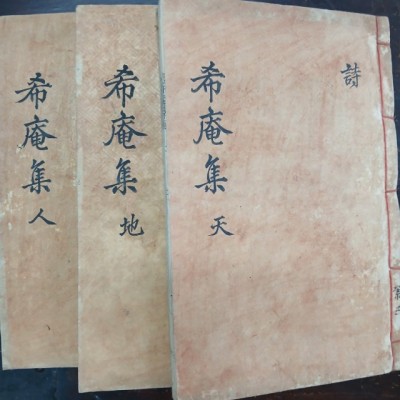 希庵集 天
詩
希庵集 地
希庵集 人